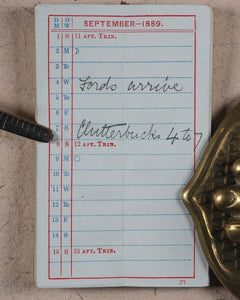 D M
D W
SEPTEMBER—1889.
1 S 11 AFT. TRIN.
2 M
3 Tu
4 W Fords arrive
5 Th
6 F
7 S Clutterbucks 4 to 7
8 S 12 AFT. TRIN.
9 M
10 Tu
11 W
12 Th
13 F
14 S
15 S 13 AFT. TRIN.